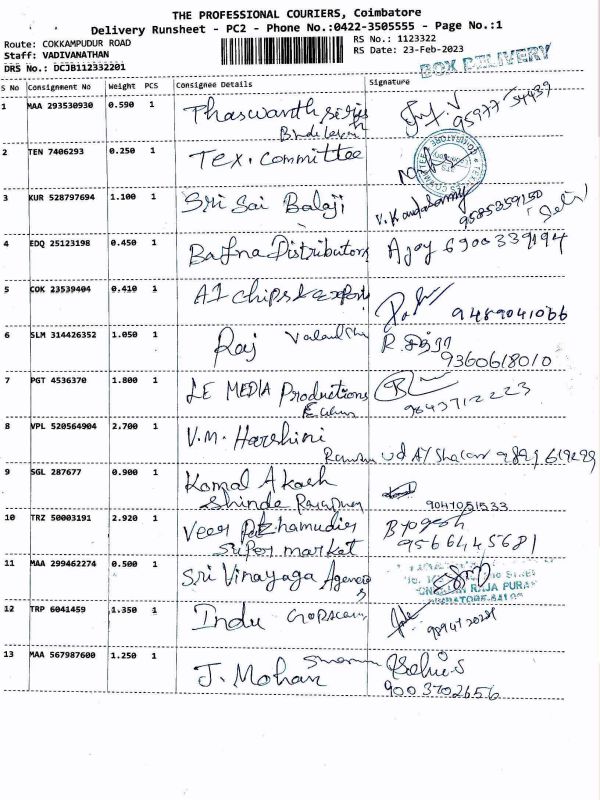 THE PROFESSIONAL COURIERS, Coimbatore
Delivery Runsheet - PC2 - Phone No.:0422-3505555 - Page No.:1
Route: COKKAMPUDUR ROAD RS No.: 1123322
Staff: VADIVANATHAN RS Date: 23-Feb-2023
DRS No.: DCJB112332201 BOX DELIVERY
S No Consignment No Weight PCS Consignee Details Signature
1 MAA 293530930 0.590 1 95977
2 TEN 7406293 0.250 1 Tex. Committee
3 KUR 528797694 1.100 1 Sri Sai Balaji 9585359150
4 EDQ 25123198 0.450 1 Bafna Distributors Ajay 6900339194
5 COK 23539404 0.410 1 A1 chips & exports 9489041066
6 SLM 314426352 1.050 1 Raj 9360618010
7 PGT 4536370 1.800 1 LE MEDIA Productions 9843712223
8 VPL 520564904 2.700 1 V.M. Harshini
9 SGL 287677 0.900 1 Komal Akash
Shinde 9047051533
10 TRZ 50003191 2.920 1 Veer Pazhamudir
super market 9566445681
11 MAA 299462274 0.500 1 Sri Vinayaga Agencies
RAJA PURAM
12 TRP 6041459 1.350 1 Indu
13 MAA 567987600 1.250 1 J. Mohan
9003702656